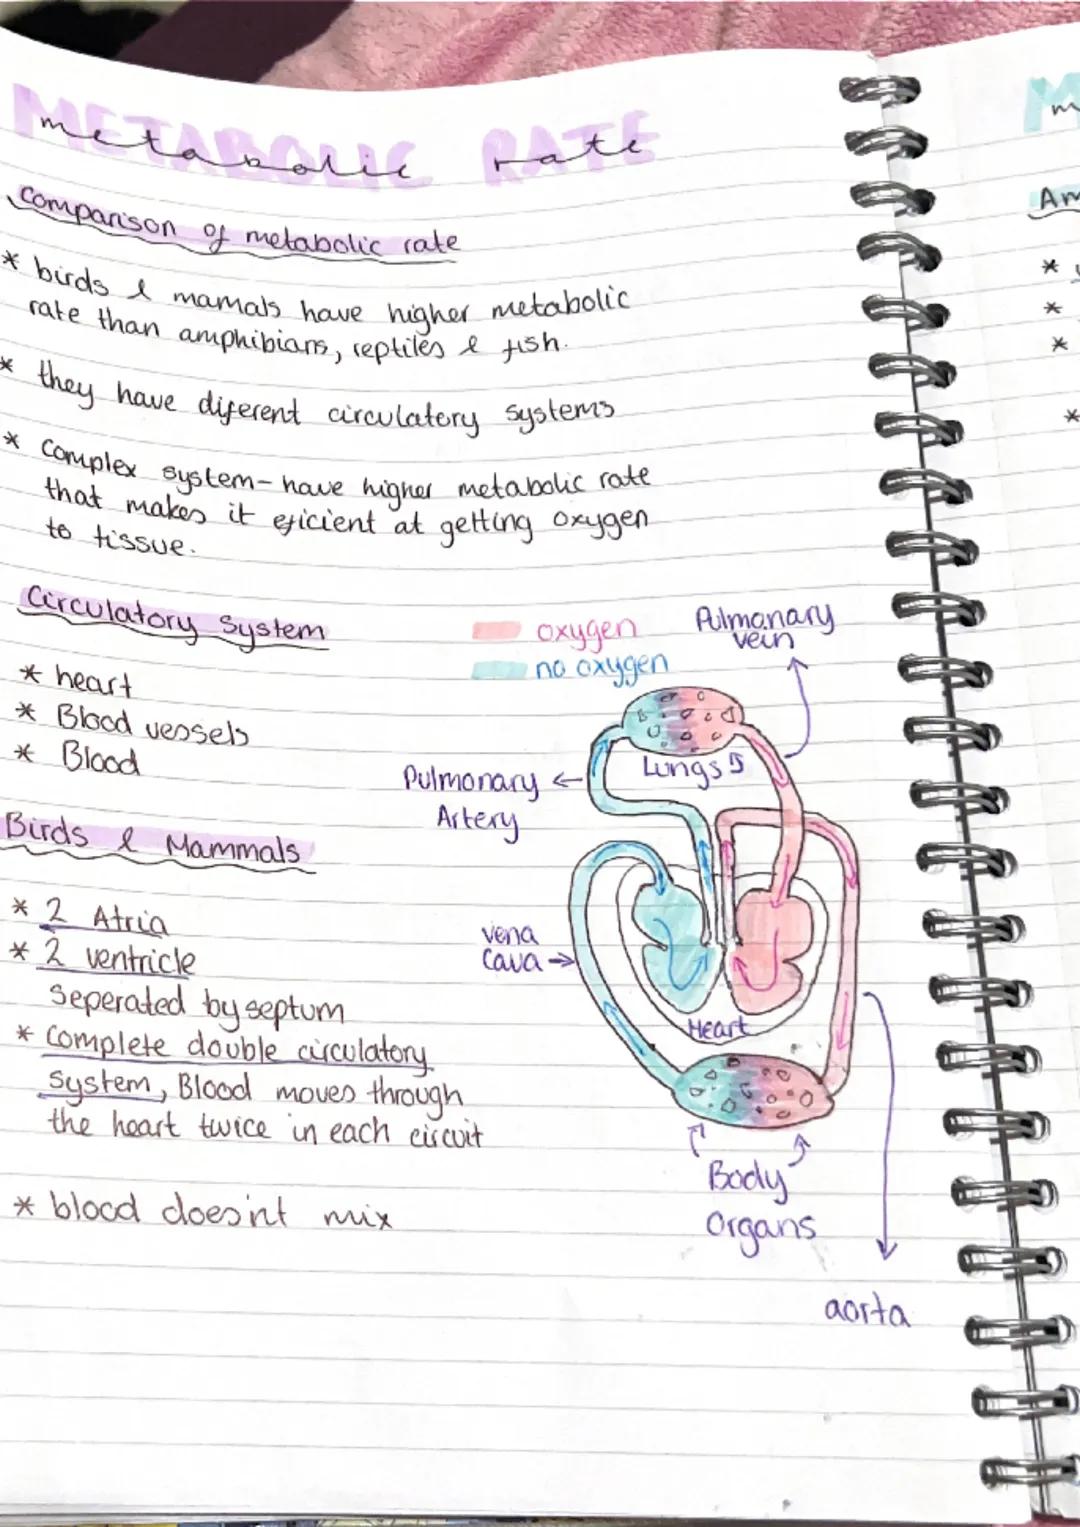 METABOLIC RATE
metabolic rate
Comparison of metabolic rate
* birds & mamals have higher metabolic
rate than amphibians, reptiles & fish.
* they have diferent circulatory systems
* Complex system - have higher metabolic rate
that makes it eficient at getting oxygen
to tissue.
Circulatory System
* heart
* Blood vessels
* Blood
oxygen
no oxygen
Pulmonary
vein
Lungs
Pulmonary
Artery
vena
cava
Heart
Body
Organs
aorta
Birds & Mammals
* 2 Atria
* 2 ventricle
Seperated by septum
* Complete double circulatory
system, Blood moves through
the heart twice in each circuit
* blood does'nt mix
M
m
*
*
*
*